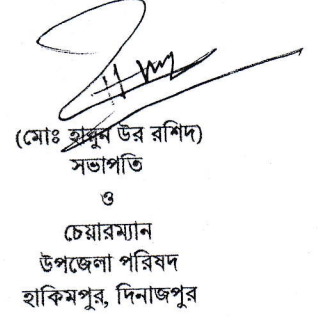 (মোঃ হারুন উর রশিদ)
সভাপতি
ও
চেয়ারম্যান
উপজেলা পরিষদ
হাকিমপুর, দিনাজপুর